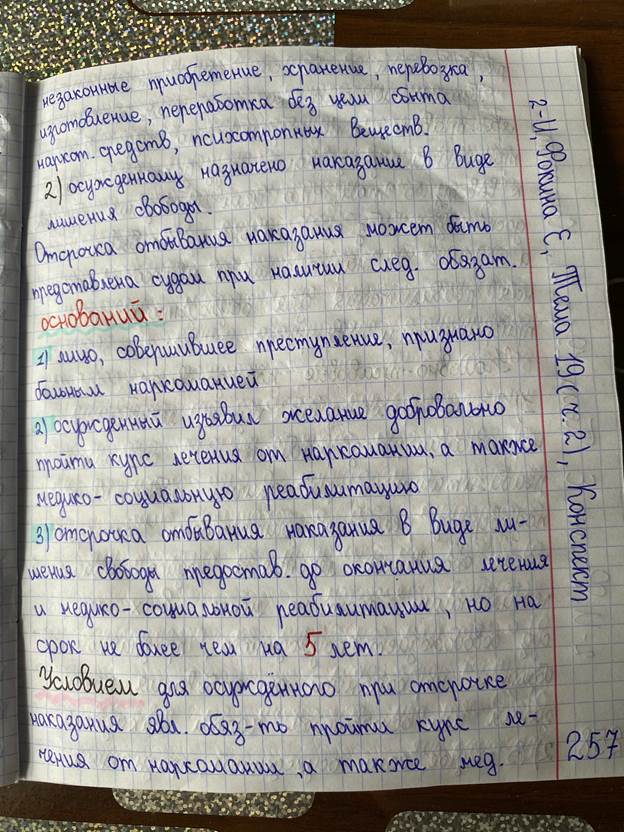 незаконные приобретение, хранение, перевозка,
изготовление, переработка без цели сбыта
наркот. средств, психотропных веществ.
2) осужденному назначено наказание в виде
лишения свободы.
Отсрочка отбывания наказания может быть
представлена судом при наличии след. обязат.
оснований:
1) лицо, совершившее преступление, признано
больным наркоманией
2) осужденный изъявил желание добровольно
пройти курс лечения от наркомании, а также
медико-социальную реабилитацию
3) отсрочка отбывания наказания в виде ли-
шения свободы предостав. до окончания лечения
и медико-социальной реабилитации, но на
срок не более чем на 5 лет.
Условием для осуждённого при отсрочке
наказания явл. обяз-ть пройти курс ле-
чения от наркомании, а также мед.
2-И, Фокина Е, Тема 19 (ч. 2), Конспект
257